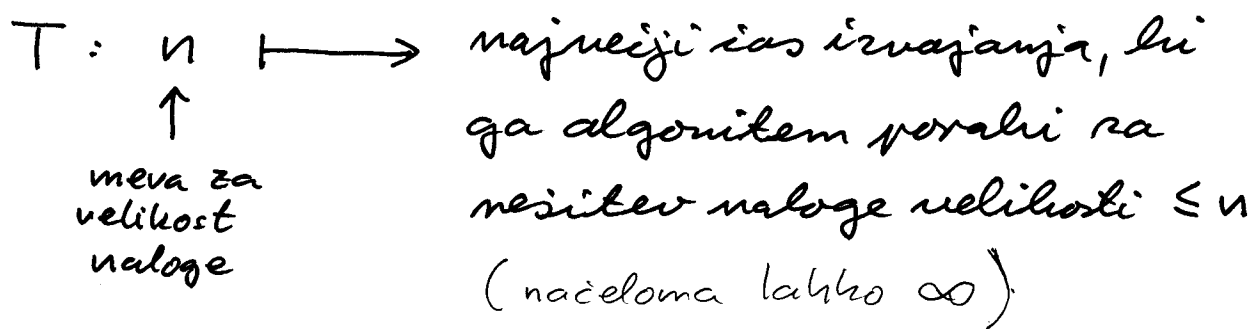 T : n ⟼ največji čas izvajanja, ki
ga algoritem porabi za
rešitev naloge velikosti ≤ n
(načeloma lahko ∞).
↑
mera za
velikost
naloge